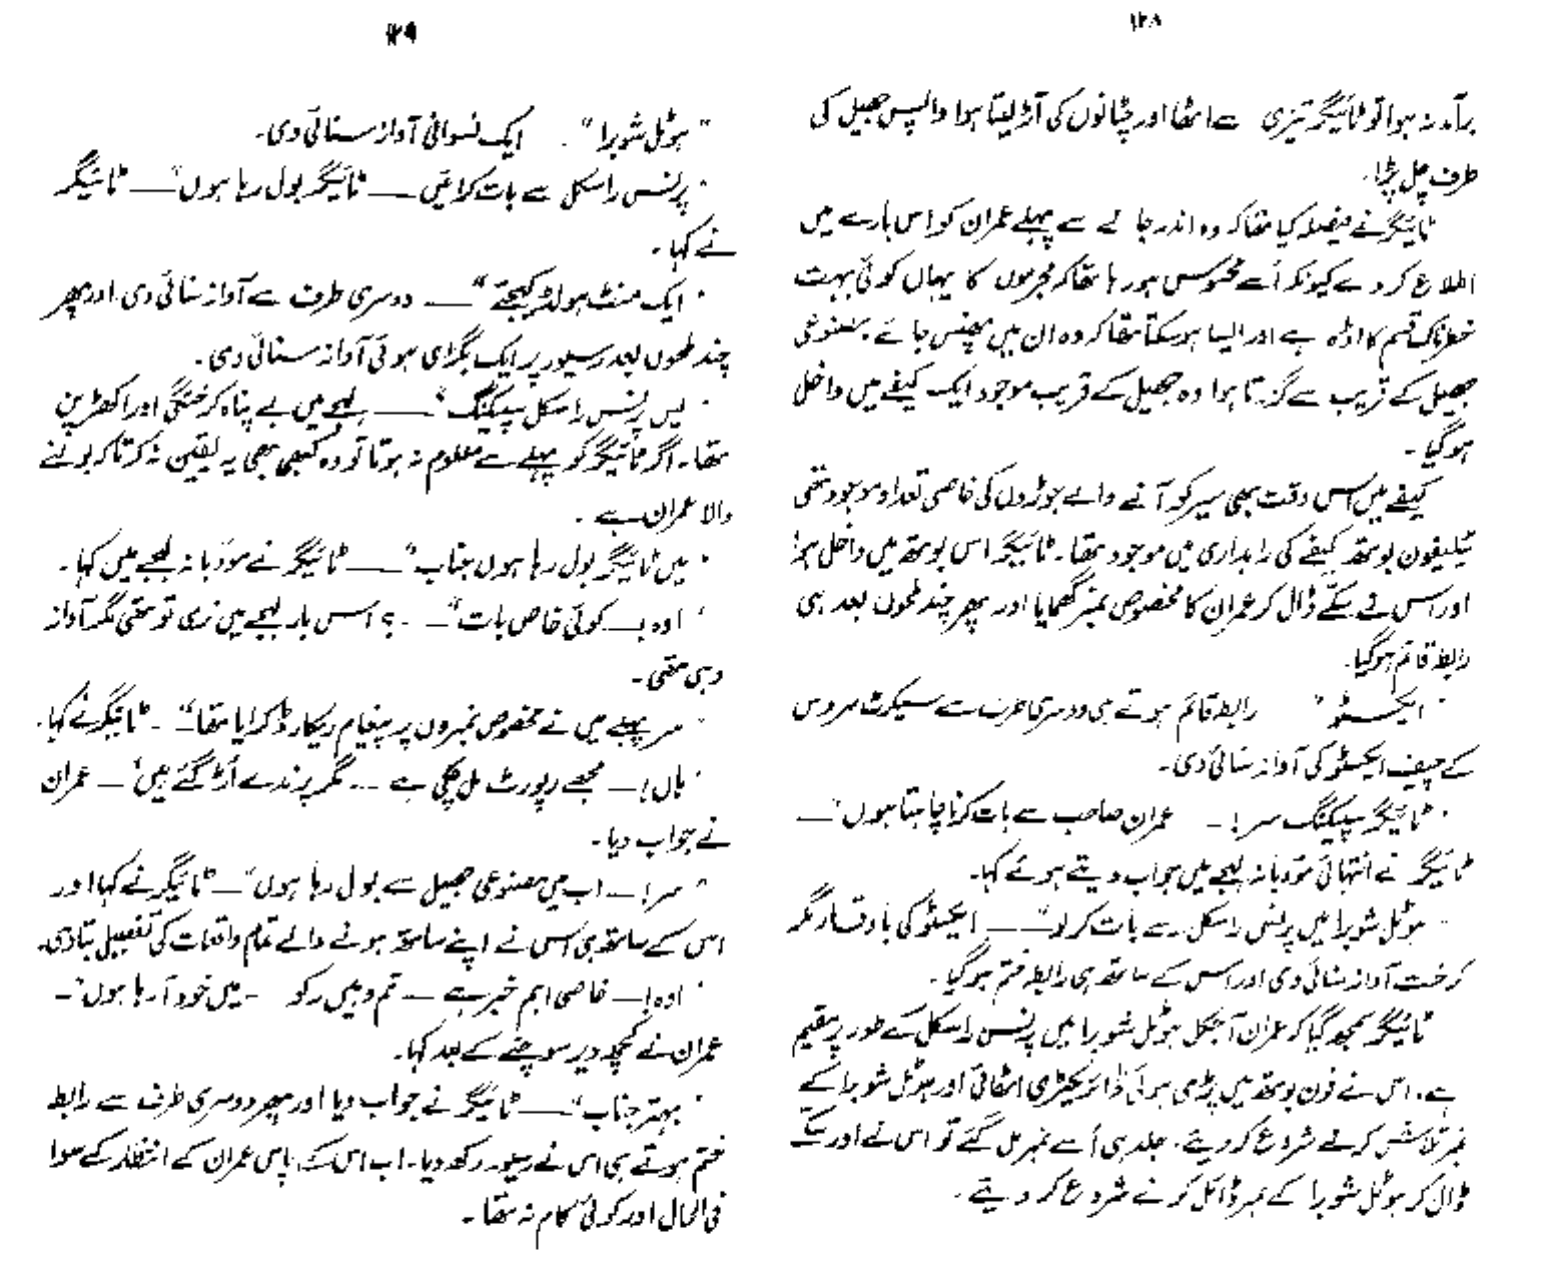 ۱۲۸
برآمد نہ ہوا تو ٹائیگر تیزی سے اٹھا اور چٹانوں کی آڑ لیتا ہوا واپس جھیل کی
طرف چل پڑا۔
ٹائیگر نے فیصلہ کیا تھا کہ وہ اندر جانے سے پہلے عمران کو اس بارے میں
اطلاع کر دے کیونکہ اُسے محسوس ہو رہا تھا کہ مجرموں کا یہاں کوئی بہت
خطرناک قسم کا اڈہ ہے اور ایسا ہو سکتا تھا کہ وہ ان میں پھنس جائے۔ مصنوعی
جھیل کے قریب سے گزرتا ہوا وہ جھیل کے قریب موجود ایک کیفے میں داخل
ہو گیا۔
کیفے میں اس وقت بھی سیر کو آنے والے جوڑوں کی خاصی تعداد موجود تھی
ٹیلیفون بوتھ کیفے کی راہداری میں موجود تھا۔ ٹائیگر اس بوتھ میں داخل ہوا
اور اس نے سکے ڈال کر عمران کا مخصوص نمبر گھمایا اور پھر چند لمحوں بعد ہی
رابطہ قائم ہو گیا۔
"ایکسٹو" رابطہ قائم ہوتے ہی دوسری طرف سے سیکرٹ سروس
کے چیف ایکسٹو کی آواز سنائی دی۔
"ٹائیگر سپیکنگ سر! ـ عمران صاحب سے بات کرنا چاہتا ہوں" ــــ
ٹائیگر نے انتہائی مؤدبانہ لہجے میں جواب دیتے ہوئے کہا۔
"ہوٹل شوبرا میں پرنس راسکل سے بات کر لو" ــــ ایکسٹو کی باوقار مگر
کرخت آواز سنائی دی اور اس کے ساتھ ہی رابطہ ختم ہو گیا۔
ٹائیگر سمجھ گیا کہ عمران آجکل ہوٹل شوبرا میں پرنس راسکل کے طور پر مقیم
ہے۔ اس نے فون بوتھ میں پڑی ہوئی ڈائریکٹری اٹھائی اور ہوٹل شوبرا کے
نمبر تلاش کرنے شروع کر دیئے۔ جلد ہی اُسے نمبر مل گئے تو اس نے اور سکے
ڈال کر ہوٹل شوبرا کے نمبر ڈائل کرنے شروع کر دیئے۔
۱۲۹
"ہوٹل شوبرا"۔ ایک نسوانی آواز سنائی دی۔
"پرنس راسکل سے بات کرائیں ــــ ٹائیگر بول رہا ہوں" ــــ ٹائیگر
نے کہا۔
"ایک منٹ ہولڈ کیجئے" ــــ دوسری طرف سے آواز سنائی دی اور پھر
چند لمحوں بعد رسیور پر ایک بگڑی ہوئی آواز سنائی دی۔
"یس پرنس راسکل سپیکنگ" ــــ لہجے میں بے پناہ کرختگی اور اکھڑپن
تھا۔ اگر ٹائیگر کو پہلے سے معلوم نہ ہوتا تو وہ کبھی بھی یہ یقین نہ کرتا کہ بولنے
والا عمران ہے۔
"میں ٹائیگر بول رہا ہوں جناب" ــــ ٹائیگر نے مؤدبانہ لہجے میں کہا۔
"اوہ ـــ کوئی خاص بات" ــــ ؟ اس بار لہجے میں نرمی تو تھی مگر آواز
وہی تھی۔
"سر پہلے میں نے مخصوص نمبروں پر پیغام ریکارڈ کرایا تھا" ـ ٹائیگر نے کہا۔
"ہاں! ـــ مجھے رپورٹ مل چکی ہے ... مگر پرندے اُڑ گئے ہیں" ـــ عمران
نے جواب دیا۔
"سر! ـــ اب میں مصنوعی جھیل سے بول رہا ہوں" ـــ ٹائیگر نے کہا اور
اس کے ساتھ ہی اس نے اپنے ساتھ ہونے والے تمام واقعات کی تفصیل بتا دی۔
"اوہ! ـــ خاصی اہم خبر ہے ـــ تم وہیں رکو ـ میں خود آ رہا ہوں" ـــ
عمران نے کچھ دیر سوچنے کے بعد کہا۔
"بہتر جناب" ــــ ٹائیگر نے جواب دیا اور پھر دوسری طرف سے رابطہ
ختم ہوتے ہی اس نے رسیور رکھ دیا۔ اب اس کے پاس عمران کے انتظار کے سوا
فی الحال اور کوئی کام نہ تھا۔